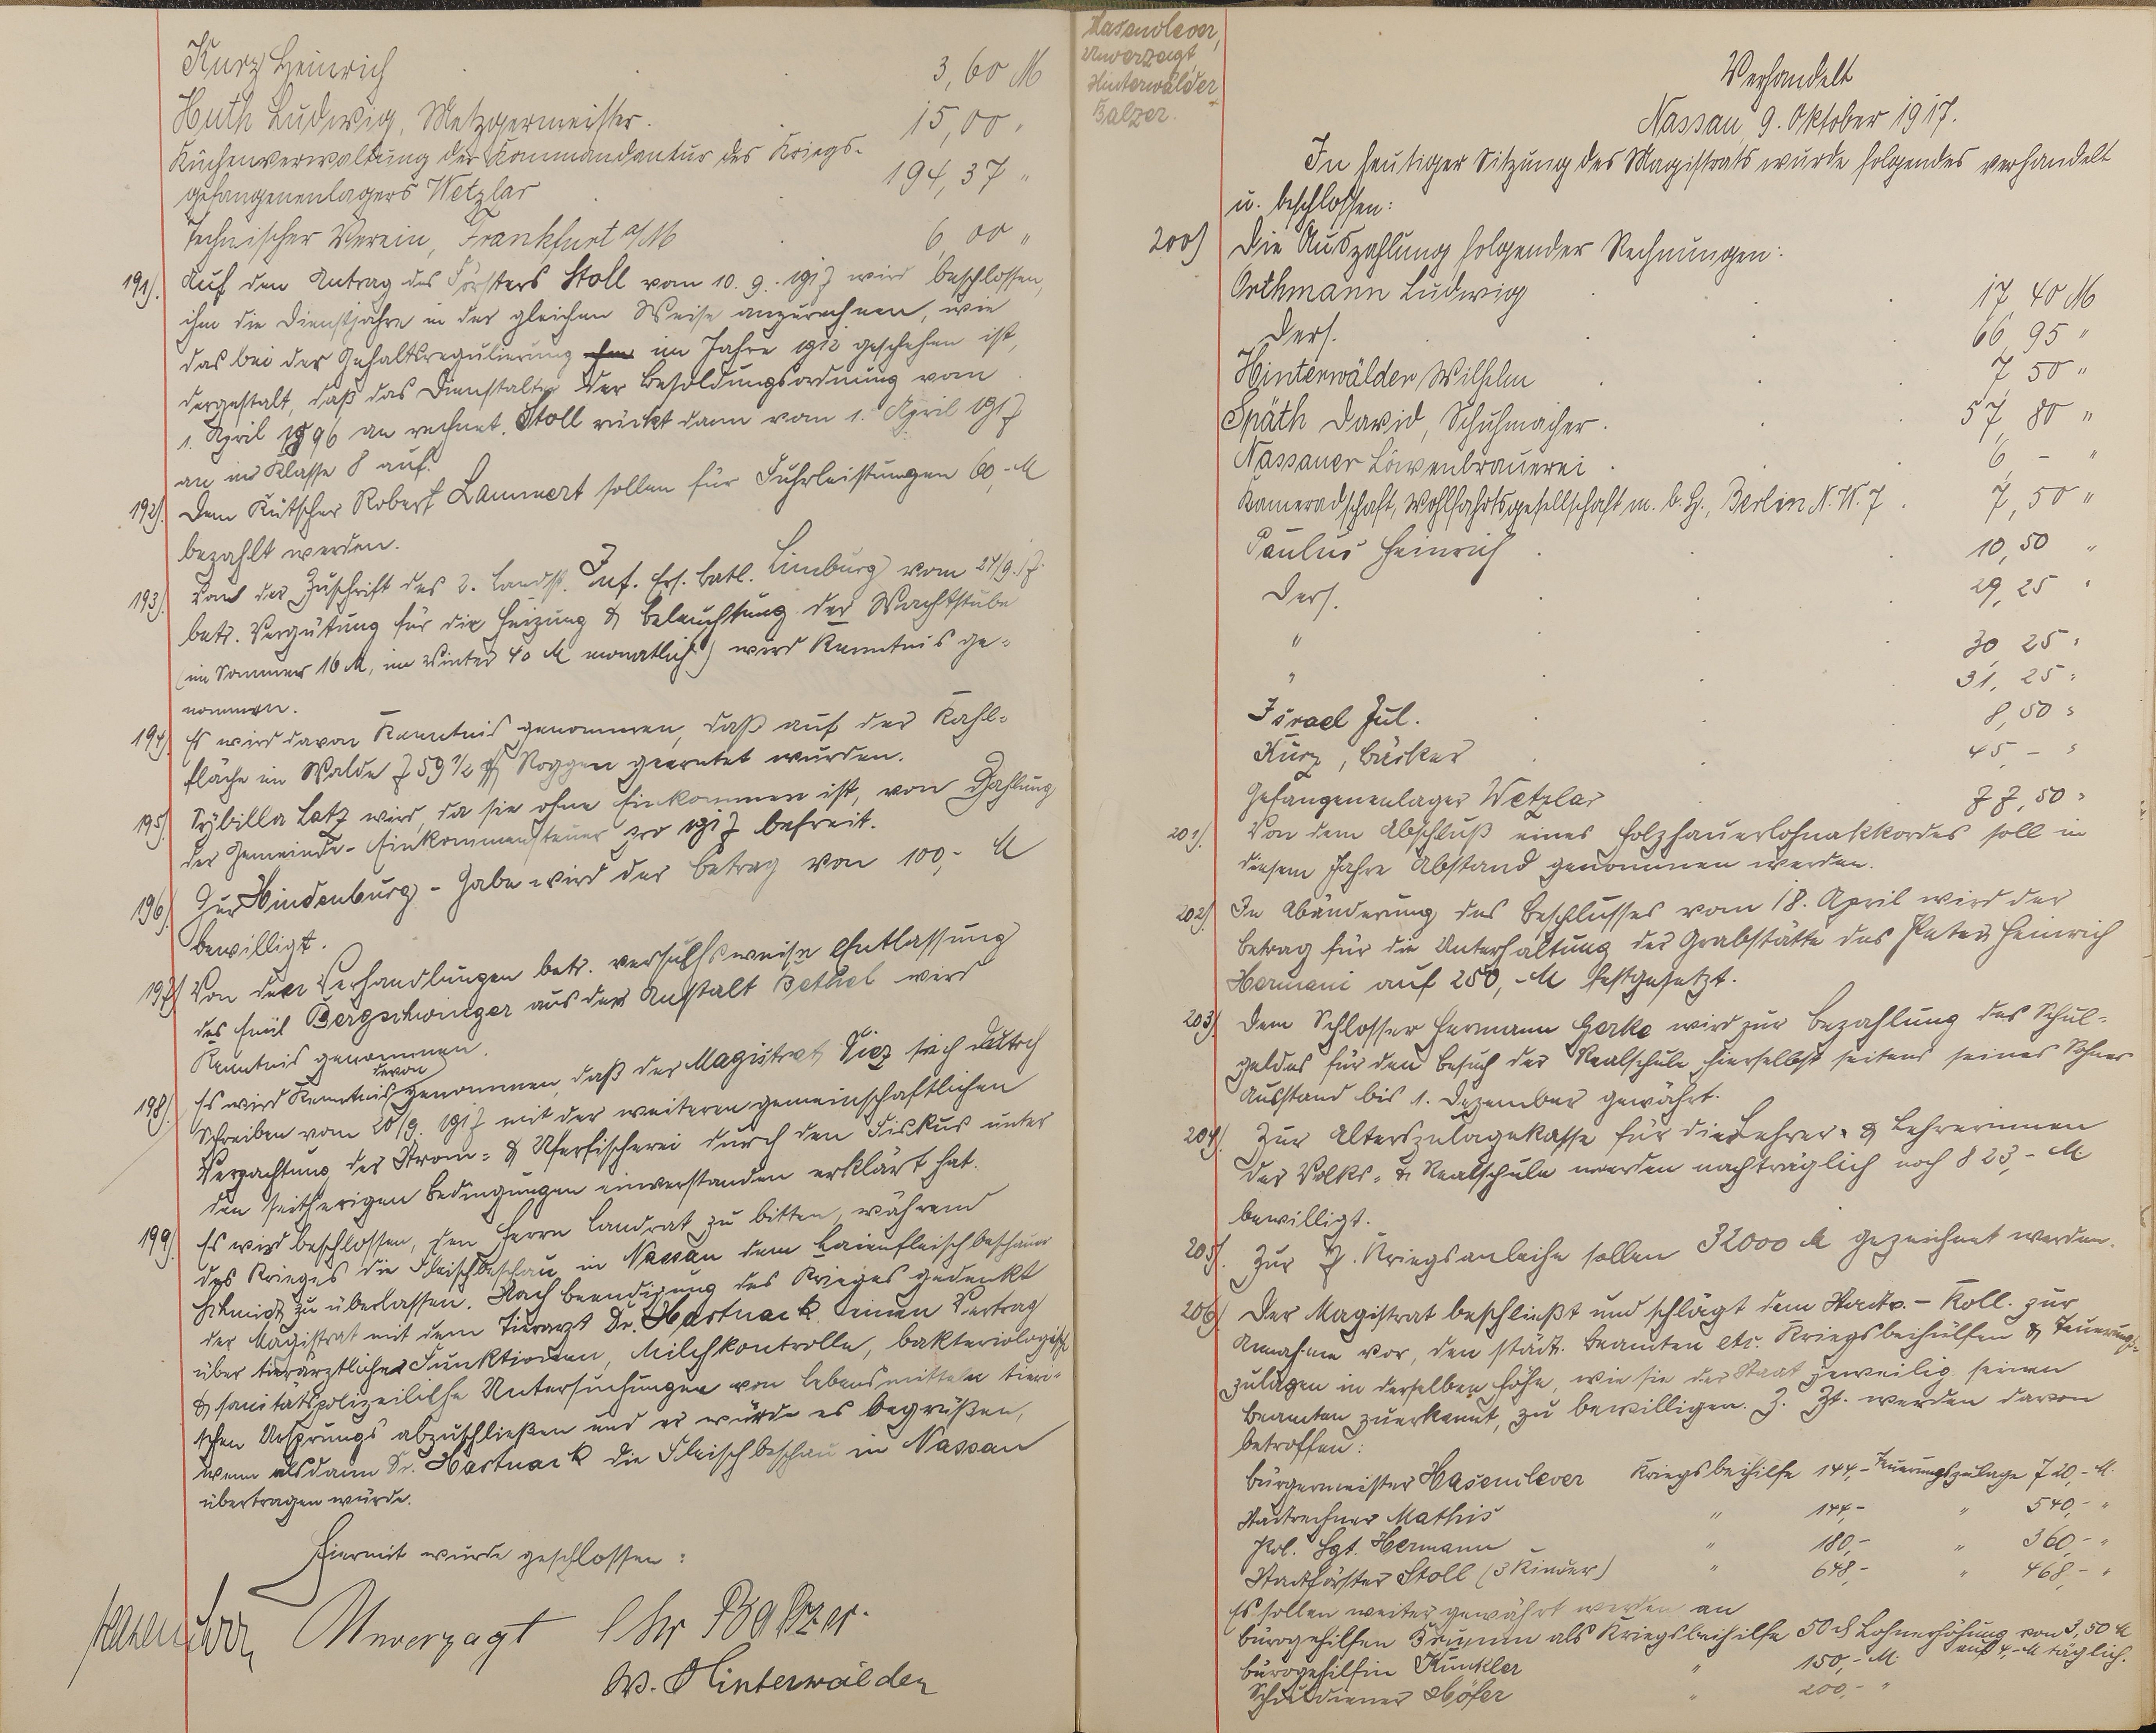 Kurz Heinrich 3,60 M
Huth Ludwig, Metzgermeister. 15,00 "
Küchenverwaltung der Kommandantur des Kriegs-
gefangenenlagers Wetzlar 194,37 "
Technischer Verein, Frankfurt a/M 6,00 "
191). Auf den Antrag des Försters Stoll vom 10. 9. 1917 wird beschlossen,
ihm die Dienstjahre in der gleichen Weise anzurechnen, wie
das bei der Gehaltsregulierung im Jahre 1912 geschehen ist,
dergestalt, daß das Dienstalter der Besoldungsordnung vom
1. April 1896 an rechnet. Stoll rückt dann vom 1. April 1917
an in Klasse 8 auf.
192). Dem Kutscher Robert Lammert sollen für Fuhrleistungen 60,- M
bezahlt werden.
193). Von der Zuschrift des 2. Landst. Inf. Ers. Batl. Limburg vom 27/9.17.
betr. Vergütung für die Heizung & Beleuchtung der Wachtstube
(im Sommer 16 M, im Winter 40 M monatlich) wird Kenntnis ge-
nommen.
194) Es wird davon Kenntnis genommen, daß auf der Kahl-
fläche im Walde 759 ½ ℔ Roggen geerntet wurden.
195) Sybilla Latz wird, da sie ohne Einkommen ist, von Zahlung
der Gemeinde-Einkommensteuer pro 1917 befreit.
196) Zur Hindenburg-Gabe wird der Betrag von 100,- M
bewilligt.
197) Von den Verhandlungen betr. versuchsweise Entlassung
des Emil Bergschwinger aus der Anstalt Bethel wird
Kenntnis genommen.
198) Es wird Kenntnis davon genommen, daß der Magistrat Diez sich durch
Schreiben vom 20/9. 1917 mit der weiteren gemeinschaftlichen
Verpachtung der Strom- & Uferfischerei durch den Fiskus unter
den seitherigen Bedingungen einverstanden erklärt hat.
199) Es wird beschlossen, den Herrn Landrat zu bitten, während
des Krieges die Fleischbeschau in Nassau dem Laienfleischbeschauer
Schmidt zu überlassen. Nach Beendigung des Krieges gedenkt
der Magistrat mit dem Tierarzt Dr. Hartnack einen Vertrag
über tierärztliche Funktionen, Milchkontrolle, bakteriologische
& sanitätspolizeiliche Untersuchungen von Lebensmitteln tieri-
schen Ursprungs abzuschließen und er würde es begrüßen,
wenn alsdann Dr. Hartnack die Fleischbeschau in Nassau
übertragen würde.
Hiermit wurde geschlossen:
Hasenclever Unverzagt Chr Balzer.
W. Hinterwälder
Hasenclever,
Unverzagt,
Hinterwälder
Balzer.
Verhandelt
Nassau 9. Oktober 1917.
In heutiger Sitzung des Magistrats wurde folgendes verhandelt
u. beschlossen:
200) Die Auszahlung folgender Rechnungen:
Orthmann Ludwig 17,40 M
Ders. 66,95 "
Hinterwälder Wilhelm 7,50 "
Späth David, Schuhmacher. 57,80 "
Nassauer Löwenbrauerei 6,- "
Kameradschaft, Wohlfahrtsgesellschaft m. b. H., Berlin N.W. 7 . 7,50 "
Paulus Heinrich 10,50 "
Ders. 29,25 "
" 30,25 "
" 31,25 "
Israel Jul. 8,50 "
Kurz, Bäcker 45,- "
Gefangenenlager Wetzlar 77,50 "
201). Von dem Abschluß eines Holzhauerlohnakkordes soll in
diesem Jahre Abstand genommen werden.
202) In Abänderung des Beschlusses vom 18. April wird der
Betrag für die Unterhaltung der Grabstätte des Peter Heinrich
Hermani auf 250,- M festgesetzt.
203) Dem Schlosser Hermann Gerke wird zur Bezahlung des Schul-
geldes für den Besuch der Realschule hierselbst seitens seines Sohnes
Ausstand bis 1. Dezember gewährt.
204) Zur Alterszulagekasse für die Lehrer- & Lehrerinnen
der Volks- & Realschule werden nachträglich noch 823,- M
bewilligt.
205). Zur 7. Kriegsanleihe sollen 32000 M gezeichnet werden.
206) Der Magistrat beschließt und schlägt dem Stadtv.-Koll. zur
Annahme vor, den städt. Beamten etc. Kriegsbeihülfen & Teuerungs-
zulagen in derselben Höhe, wie sie der Staat jeweilig seinen
Beamten zuerkennt, zu bewilligen. Z. Zt. werden davon
betroffen:
Bürgermeister Hasenclever Kriegsbeihilfe 144,- Teuerungszulage 720,- M.
Stadtrechner Mathis " 144,- " 540,- "
Pol. Sgt. Hermann " 180,- " 360,- "
Stadtförster Stoll (3 Kinder) " 648,- " 468,- "
Es sollen weiter gewährt werden an
Bürogehilfen als Kriegsbeihilfe 50 M Lohnerhöhung von 3,50 M
auf 4,- M täglich.
Bürogehilfin Kunkler " 150,- M.
Schuldiener Höfer " 200,- "